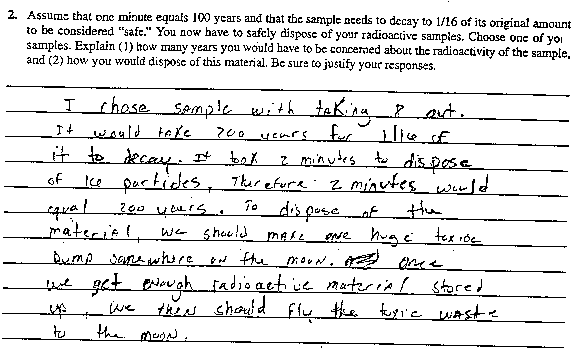 2. Assume that one minute equals 100 years and that the sample needs to decay to 1/16 of its original amount
to be considered "safe." You now have to safely dispose of your radioactive samples. Choose one of yo
samples. Explain (1) how many years you would have to be concerned about the radioactivity of the sample,
and (2) how you would dispose of this material. Be sure to justify your responses.
I chose sample with taking 8 out.
It would take 200 years for 1/16 of
it to decay. It took 2 minutes to dispose
of particles, Therefore 2 minutes would
equal 200 years. To dispose of the
material, we should make one huge toxic
Dump somewhere on the moon. once
we get enough radioactive material stored
up, we then should fly the toxic waste
to the moon.